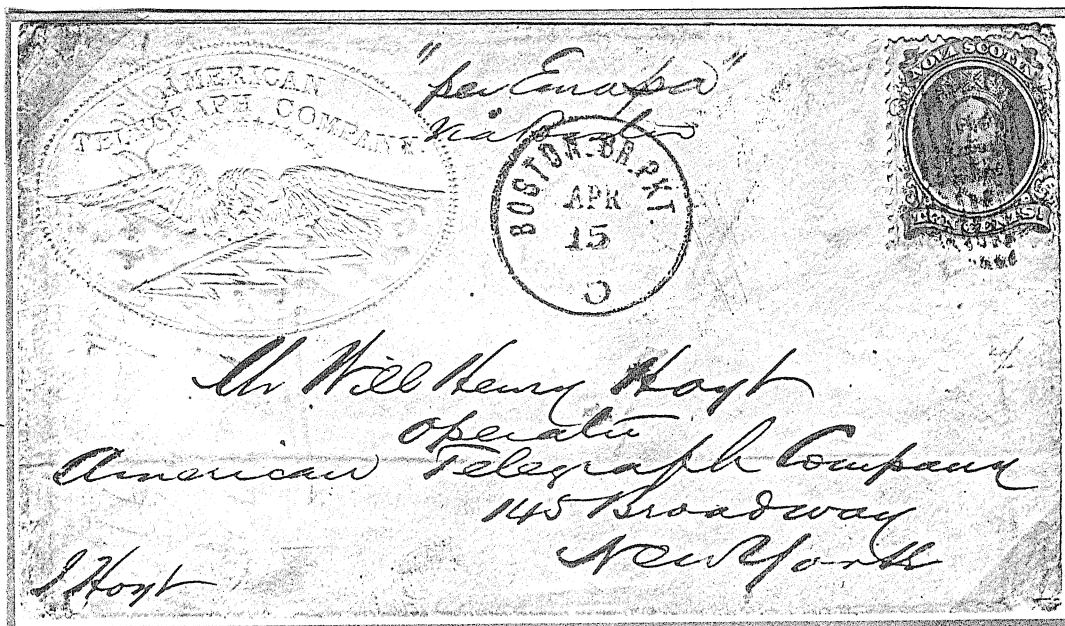 AMERICAN
TELEGRAPH COMPANY
"per Europa"
via Boston
BOSTON. BR. PKT.
APR
15
NOVA SCOTIA
CENTS
Mr Will Henry Hoyt
Operator
American Telegraph Company
145 Broadway
New York
J Hoyt